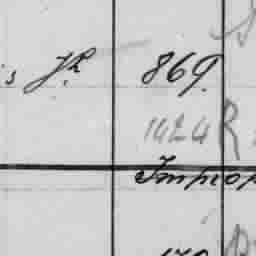 s Jr 869
1424 R
Improp